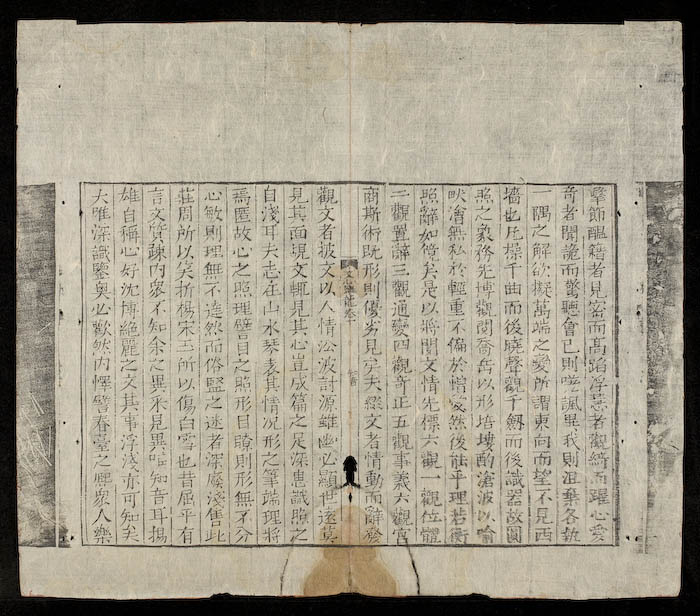 擊節醞籍者見密而高蹈浮慧者觀綺而躍心愛
奇者聞詭而驚聽會己則嗟諷異我則沮棄各執
一隅之解欲擬萬端之變所謂東向而望不見西
墻也凡操千曲而後曉聲觀千劒而後識器故圓
照之象務先博觀閱喬岳以形培塿酌滄波以喻
畎澮無私於輕重不偏於憎愛然後能平理若衡
照辭如鏡矣是以將閱文情先標六觀一觀位體
二觀置辭三觀通變四觀奇正五觀事義六觀宮
商斯術既形則優劣見矣夫綴文者情動而辭發
文心雕龍卷十
觀文者披文以入情沿波討源雖幽必顯世遠莫
見其面覘文輒見其心豈成篇之足深患識照之
自淺耳夫志在山水琴表其情況形之筆端理將
焉匿故心之照理譬目之照形目瞭則形無不分
心敏則理無不達然而俗鑒之迷者深廢淺售此
莊周所以笑折楊宋玉所以傷白雪也昔屈平有
言文質疎內衆不知余之異采見異唯知音耳揚
雄自稱心好沈博絕麗之文其事浮淺亦可知矣
夫唯深識鑒奧必歡然內懌譬春臺之熙衆人樂